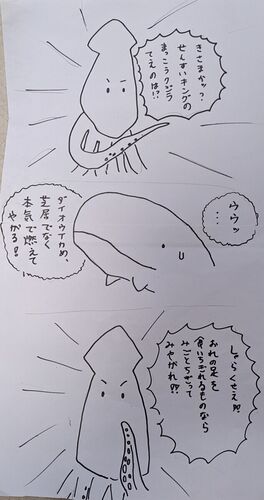 きさまかッ?
せんすいキングの
まっこうクジラ
てえのは!?
ウウッ
…
ダイオウイカめ、
芝居でなく
本気で燃えて
やがる!
しゃらくせえ!!
おれの足を
食いちぎれるものなら
みごとちぎって
みやがれ!!